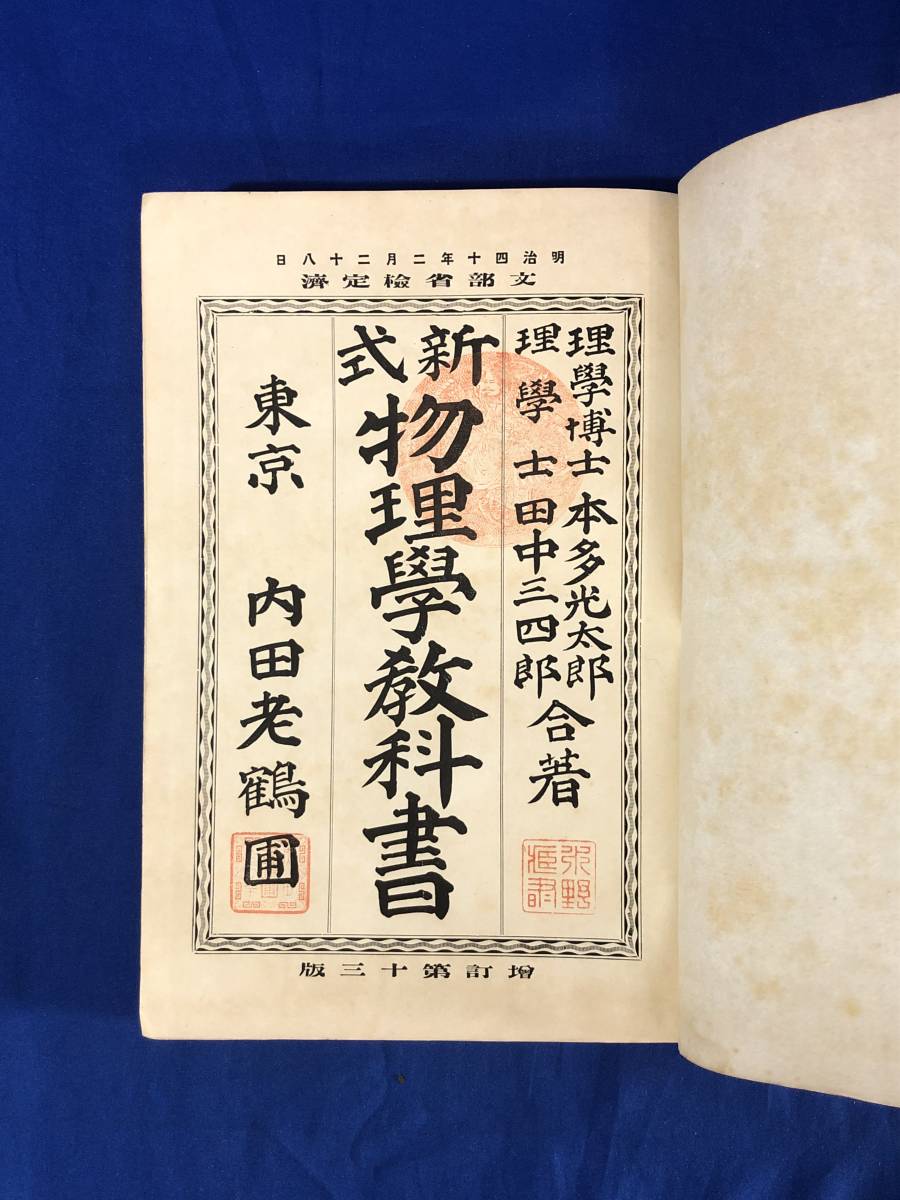 明治四十年二月二十八日
文部省檢定濟
理學博士 本多光太郎
理學士 田中三四郎
合著
新式
物理學教科書
東京 内田老鶴圃
增訂第十三版